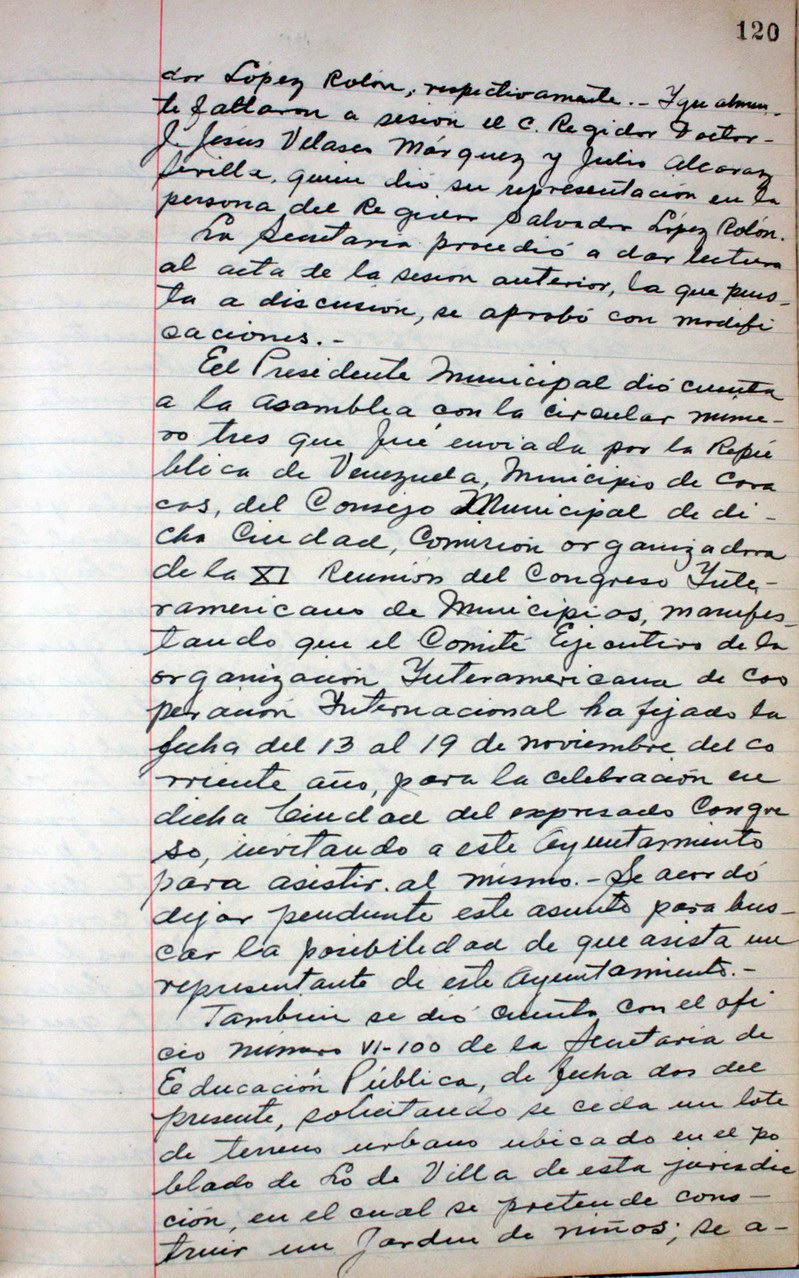 120
dor López Rolón, respectivamente.- Igualmen-
te faltaron a sesión el C. Regidor Doctor-
J. Jesús Velasco Márquez y Julio Alcaraz
Sevilla, quien dió su representación en la
persona del Regidor Salvador López Rolón.
La Secretaria procedió a dar lectura
al acta de la sesion anterior, la que pues-
ta a discusión, se aprobó con modifi
caciones.-
El Presidente Municipal dió cuenta
a la asamblea con la circular núme-
ro tres que fué enviada por la Repú
blica de Venezuela, Municipio de Cara
cas, del Consejo Municipal de di-
cha Ciudad, Comisión organizadora
de la XI Reunión del Congreso Inte-
ramericano de Municipios, manifes-
tando que el Comité Ejecutivo de la
organización Interamericana de coo
peración Internacional ha fijado la
fecha del 13 al 19 de noviembre del co
rriente año, para la celebración en
dicha Ciudad del expresado Congre
so, invitando a este Ayuntamiento
para asistir.al mismo.- Se acordó
dejar pendiente este asunto para bus-
car la posibilidad de que asista un
representante de este Ayuntamiento.-
Tambien se dió cuenta con el ofi
cio número VI-100 de la Secretaría de
Educación Pública, de fecha dos del
presente, solicitando se ceda un lote
de terreno urbano ubicado en el po
blado de Lo de Villa de esta jurisdic
ción, en el cual se pretende cons-
truir un Jardin de niños; se a-